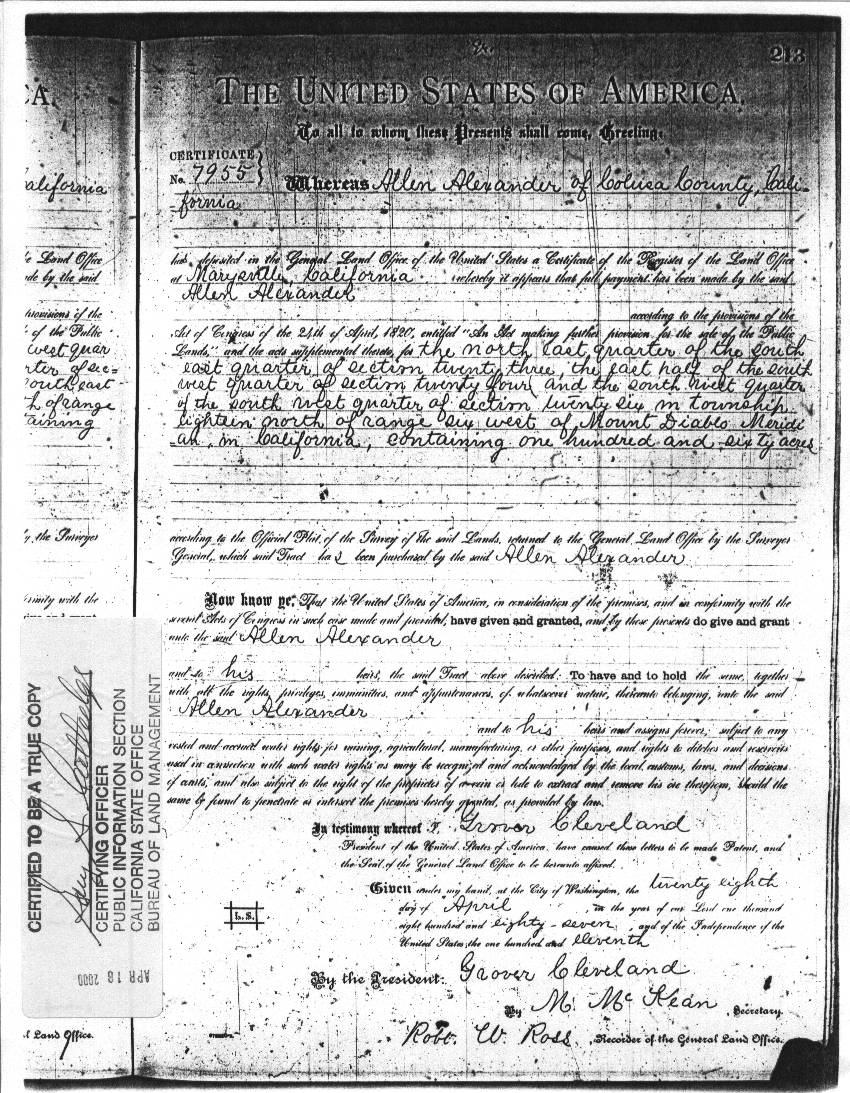 213
CA.
THE UNITED STATES OF AMERICA.
To all to whom these Presents shall come, Greeting:
CERTIFICATE
No. 7955
Whereas Allen Alexander of Colusa County, Cali-
fornia
has deposited in the General Land Office of the United States a Certificate of the Register of the Land Office
at Marysville, California whereby it appears that full payment has been made by the said
Allen Alexander
according to the provisions of the
Act of Congress of the 24th of April, 1820, entitled "An Act making further provision for the sale of the Public
Lands," and the acts supplemental thereto, for the north east quarter of the south
east quarter of section twenty three, the east half of the south
west quarter of section twenty four, and the south west quarter
of the south west quarter of section twenty six in township
eighteen north of range six west of Mount Diablo Meridi
-an, in California, containing one hundred and sixty acres
according to the Official Plat of the Survey of the said Lands, returned to the General Land Office by the Surveyor
General, which said Tract has been purchased by the said Allen Alexander
Now know ye, That the United States of America, in consideration of the premises, and in conformity with the
several Acts of Congress in such case made and provided, have given and granted, and by these presents do give and grant
unto the said Allen Alexander
and to his heirs, the said Tract above described: To have and to hold the same, together
with all the rights, privileges, immunities, and appurtenances, of whatsoever nature, thereunto belonging, unto the said
Allen Alexander
and to his heirs and assigns forever; subject to any
vested and accrued water rights for mining, agricultural, manufacturing, or other purposes, and rights to ditches and reservoirs
used in connection with such water rights as may be recognized and acknowledged by the local customs, laws, and decisions
of courts, and also subject to the right of the proprietor of a vein or lode to extract and remove his ore therefrom, should the
same be found to penetrate or intersect the premises hereby granted, as provided by law.
In testimony whereof I, Grover Cleveland
President of the United States of America, have caused these letters to be made Patent, and
the Seal of the General Land Office to be hereunto affixed.
Given under my hand, at the City of Washington, the twenty eighth
day of April, in the year of our Lord one thousand
eight hundred and eighty-seven, and of the Independence of the
United States the one hundred and eleventh
L.S.
By the President: Grover Cleveland
By M. McKean, Secretary.
Robt. W. Ross, Recorder of the General Land Office.
alifornia
Land Office
de by the said
provisions of the
of the Public
west quar
rter of sec=
outh east
h of range
taining
the Surveyor
rmity with the
l Land Office.
CERTIFIED TO BE A TRUE COPY
CERTIFYING OFFICER
PUBLIC INFORMATION SECTION
CALIFORNIA STATE OFFICE
BUREAU OF LAND MANAGEMENT
APR 18 2000